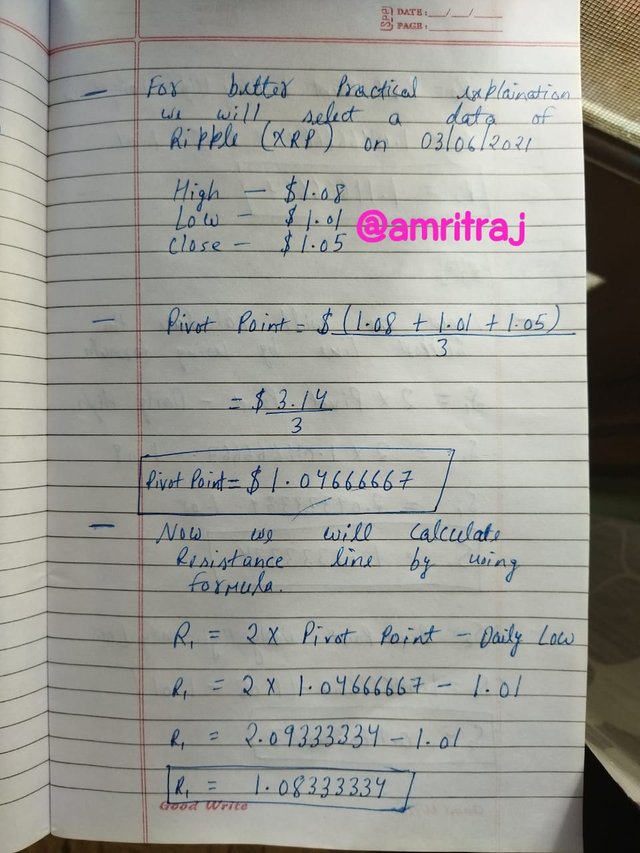 SPP DATE: __/__/__
PAGE:
— For better Practical explaination
we will select a data of
Ripple (XRP) on 03/06/2021
High — $1.08
Low — $1.01
@amritraj
Close — $1.05
— Pivot Point = $ (1.08 + 1.01 + 1.05)
3
= $ 3.14
3
Pivot Point = $1.04666667
— Now we will calculate
Resistance line by using
formula.
R₁ = 2 × Pivot Point — Daily Low
R₁ = 2 × 1.04666667 — 1.01
R₁ = 2.09333334 — 1.01
R₁ = 1.08333334
Good Write